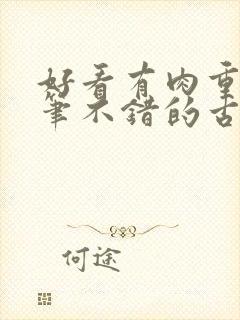 好看有肉重
笔不错的古
何途